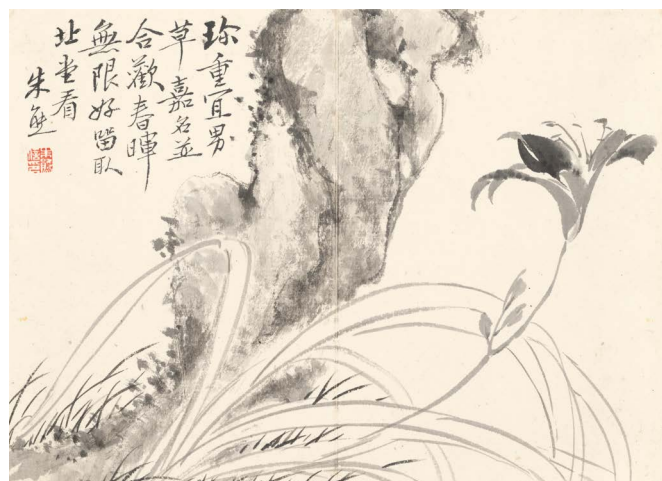 珍重宜男
草嘉名並
合歡春暉
無限好留取
北堂看
朱熊